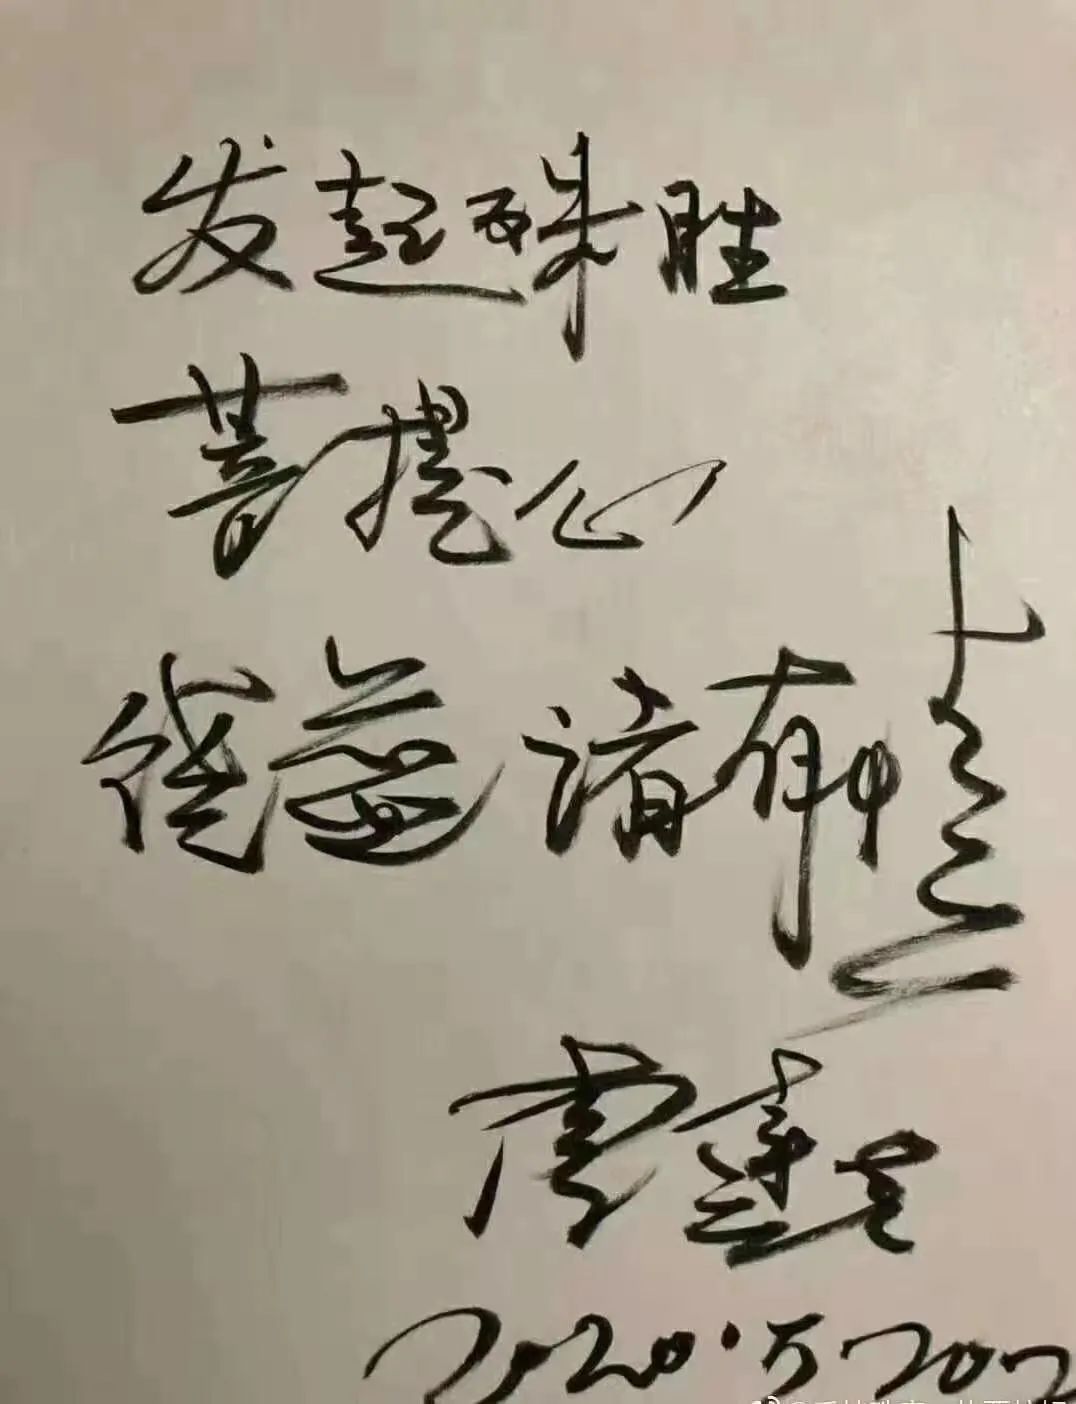 发起殊胜
菩提心
饶益诸有情
2020·5·20